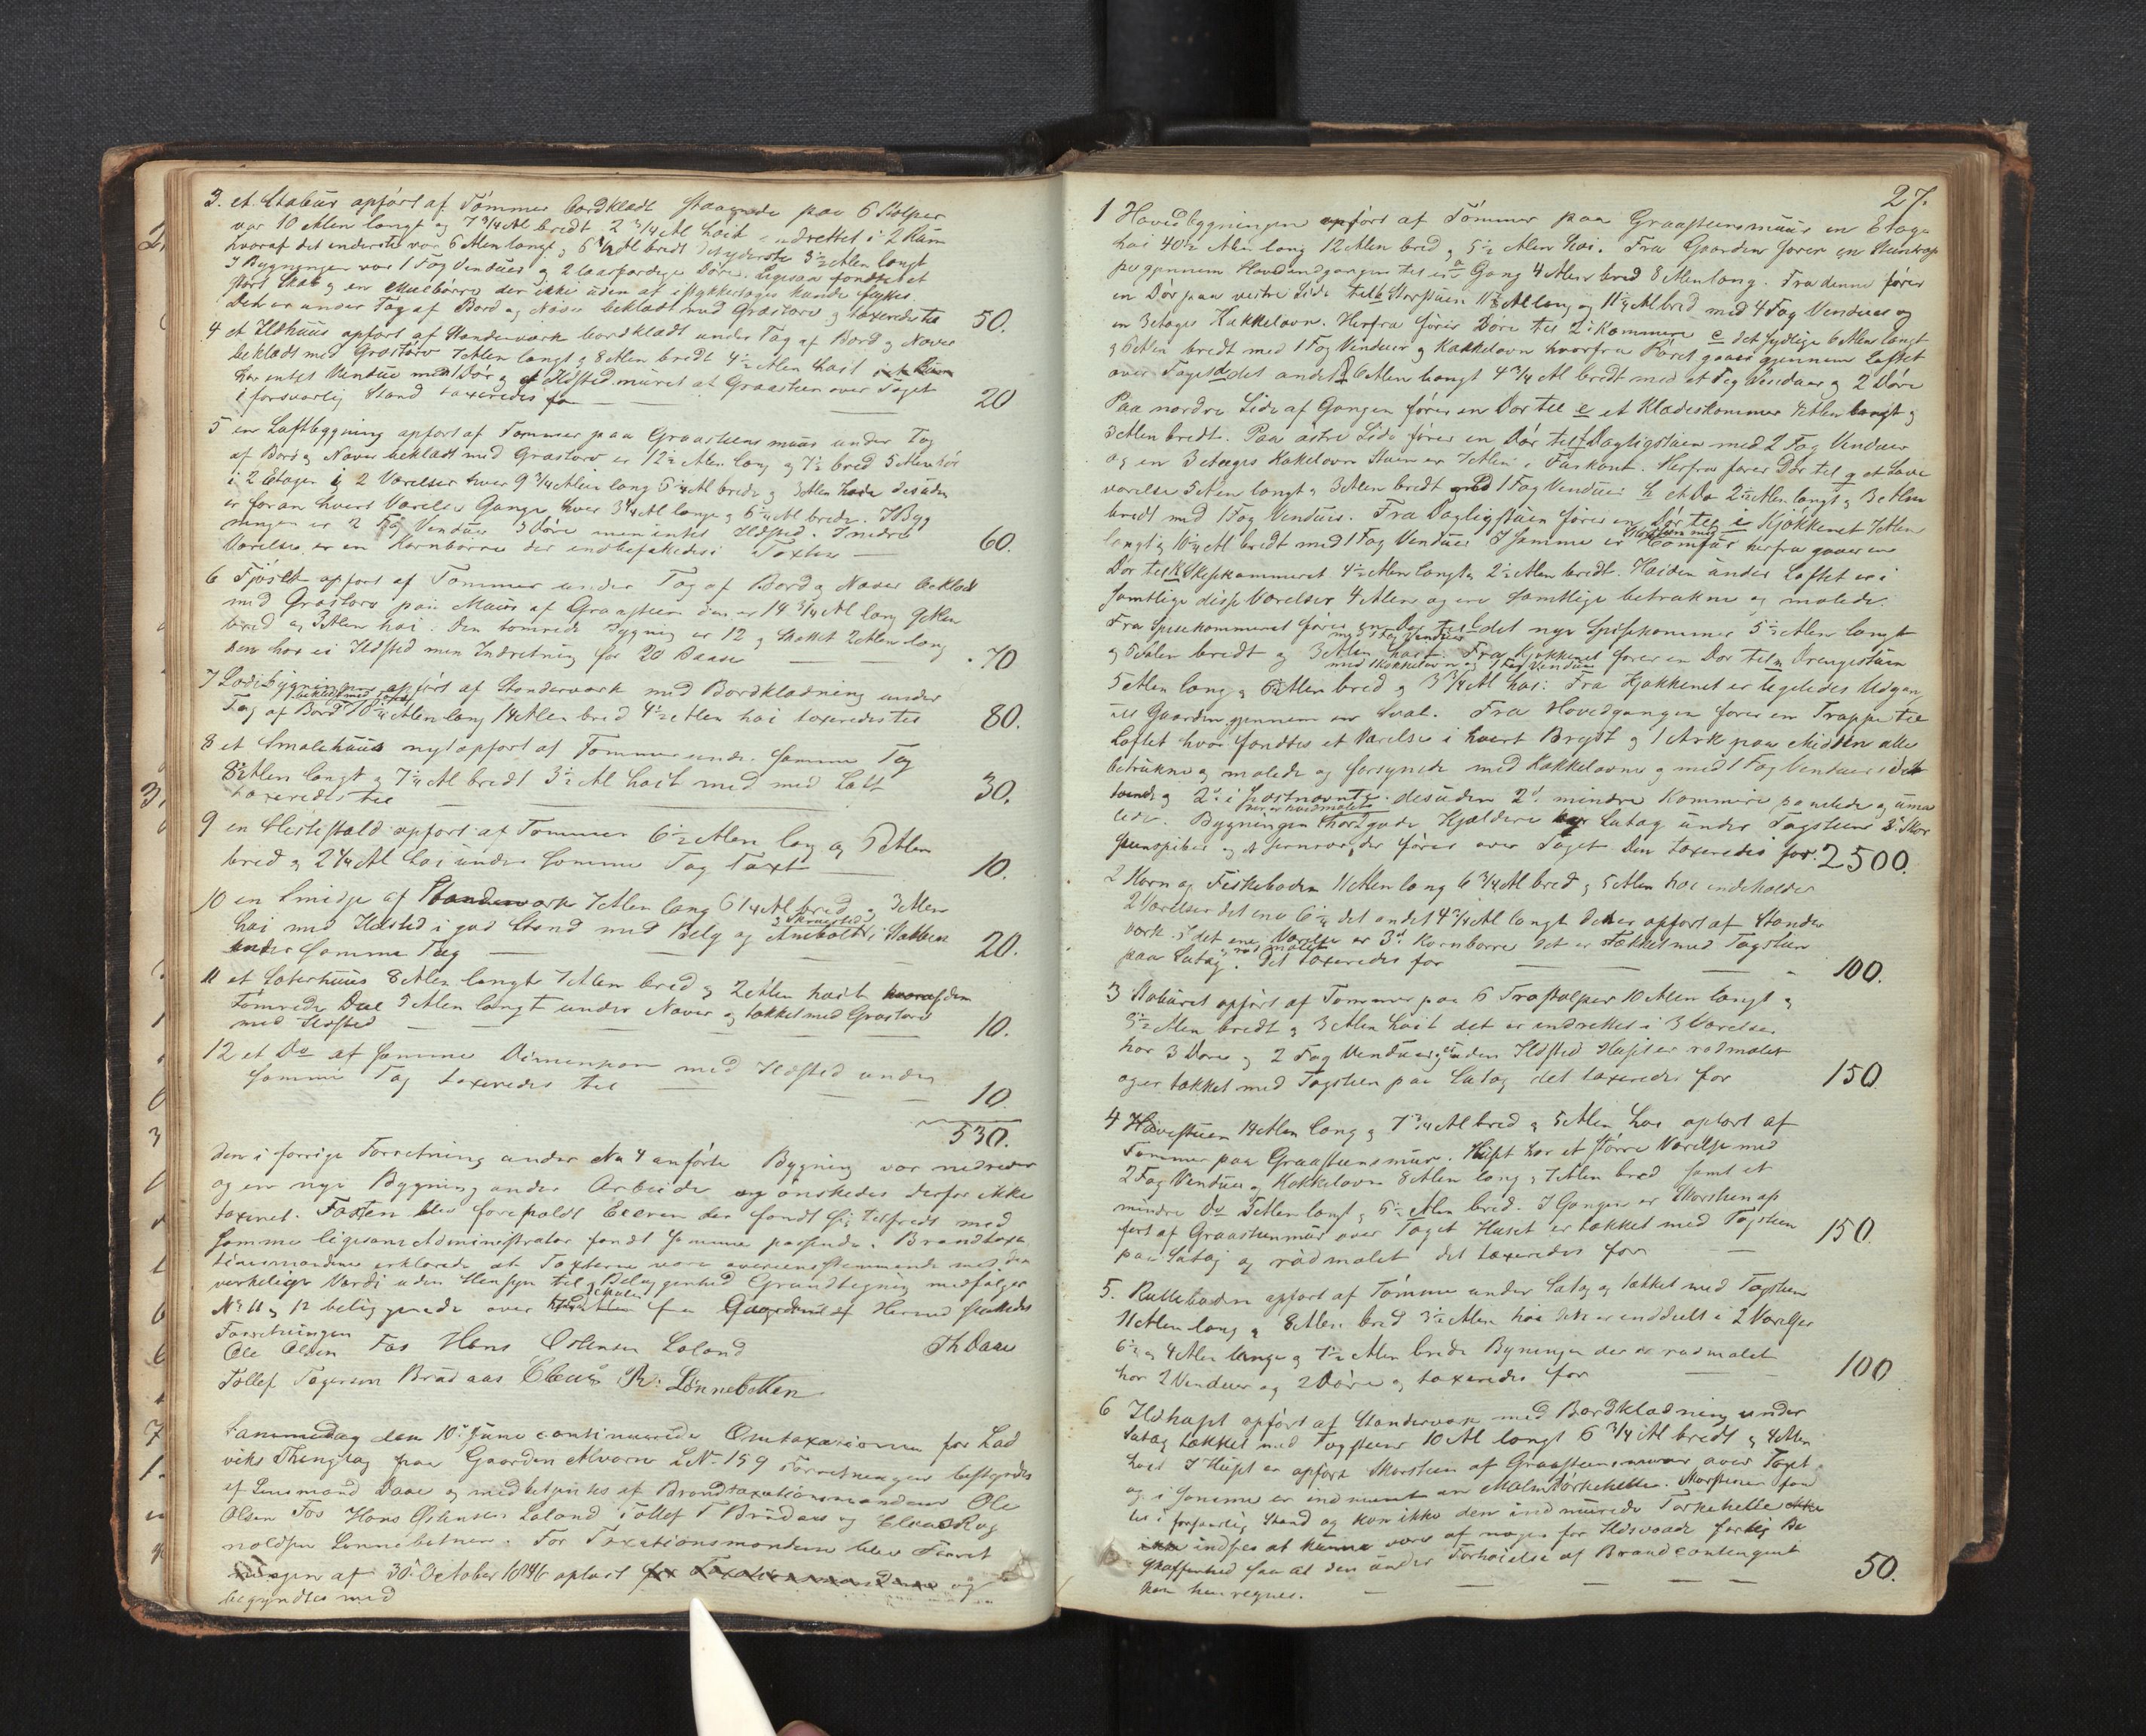 3. et Stabuur opført af Tømmer bordklædt staaende paa 6 Stolper
var 10 Alen langt og 7 3/4 Al bredt 2 3/4 Al høit indrettet i 2 Rum
hvoraf det inderste var 6 Alen langt, bredt det yderste 3 1/2 Alen langt
I Bygningen var 1 Fag Vinduer og 2 laasfærdige Døre. Ligesaa fandtes et
stort Skab og en Meelbørre der ikke uden at istykkertages kunde flyttes.
Den er under Tag af Bord og Næver beklædt med Græstorv og taxeredes til 50.
4 et Ildhuus opført af Standerværk bordklædt under Tag af Bord og Næver
beklædt med Græstorv 7 Alen langt og 8 Alen bredt 4 1/2 Alen høit
har intet Vindue med 1 Dør og et Ildsted muret af Graasteen over Taget
i forsvarlig Stand taxeredes for 20
5 en Loftbygning opført af Tømmer paa Graasteens muur under Tag
af Bord og Næver beklædt med Græstorv er 12 1/2 Alen lang og 7 1/2 bred 5 Alen høi
i 2 Etager i 2 Værelser hver 9 3/4 Alen lang 6 1/4 Al brede og 3 Alen høie desuden
er foran hvert Værelse Gange hver 3 1/4 Al lange og 6 1/4 Al brede. I Byg
ningen er 2 Fag Vinduer 3 Døre men intet Ildsted. I nedre
Værelse er en Kornbørre der indbefattedes i Taxten 60.
6 Fjøset opført af Tømmer under Tag af Bord og Næver beklædt
med Græstorv paa Muur af Graasteen den er 14 3/4 Al lang 9 Alen
bred og 3 Alen høi. Den tømrede Bygning er 12 og Skottet 2 Alen lang
den har ei Ildsted men Indretning for 20 Baase 70
7 Ladebygningen opført af Standerværk med Bordklædning under
Tag af Bord beklædt med Torv Alen lang 14 Alen bred 4 1/2 Alen høi taxeredes til 80.
8 et Smalehuus nyt opført af Tømmer under samme Tag
8 1/2 Alen langt og 7 1/4 Al bredt 3 1/2 Al høit med med Loft
taxeredes til 30.
9 en Hestestald opført af Tømmer 6 1/2 Alen lang og 5 Alen
bred og 2 1/4 Al høi under samme Tag Taxt 10.
10 en Smidje af Standerværk 7 Alen lang 6 1/4 Al bred og 3 Alen
høi med Ildsted i god Stand med Belg og Ambolt i Stabben
under samme Tag 20.
11 et Sæterhuus 8 Alen langt 7 Alen bred og 2 Alen høit hvoraf den
tømrede Deel 5 Alen langt under Næver og tækket med Græstorv
med Ildsted 10.
12 et Do af samme Dimension med Ildsted under
samme Tag taxeredes til 10
530.
den i forrige Forretning under No 4 anførte Bygning var nedrevet
og en nye Bygning under Arbeide og ønskedes derfor ikke
taxeret. Taxten blev foreholdt Eieren der fandt sig tilfreds med
samme ligesom Administrator fandt samme passende. Brandtaxa
tionsmændene erklærede at Taxterne vare overeensstemmende med den
virkelige Værdi uden Hensyn til Beliggenhed Grundtegning medfølger
No 11 og 12 beliggende over fra Gaarden Hermed sluttedes
Forretningen
Ole Olsen Fos Hans Ostensen Loland Th Daae
Tollef Tagesen Bradaas Claus R: Lønnebotten
Sammedag den 10de Juni continuerede Omtaxationen for Lad
viks Thinglag paa Gaarden Alværn LNo 159 Forretningen bestyredes
af Lensmand Daae og medbetjentes af Brandtaxationsmændene Ole
Olsen Fos Hans Ostensen Loland Tollef T Bradaas og Claus Rog
noldsen Lønnebotnen. For Taxationsmændene blev Forret
ningen af 30te October 1846 oplæst og
begyndtes med
27.
1 Hovedbygningen opført af Tømmer paa Graasteensmuur en Etage
høi 40 1/2 Alen lang 12 Alen bred og 5 1/2 Alen høi. Fra Gaarden fører en Steentrap
pe gjennem Hovedindgangen til en a Gang 4 Alen bred 8 Alen lang. Fra denne fører
en Dør paa vestre Side til b Storstuen 11 1/2 Al lang og 11 1/2 Al bred med 4 Fag Vinduer og
en 3 etages Kakkelovn. Herfra fører Døre til 2de Kammere c det sydlige 6 Alen langt
og 6 Alen bredt med 1 Fag Vinduer og Kakkelovn hvorfra Røret gaaer gjennem Loftet
over Taget d det andet 6 Alen langt 4 3/4 Al bredt med et Fag Vinduer og 2 Døre
Paa nordre Side af Gangen fører en Dør til e et Klædeskammer 4 Alen langt og
3 Alen bredt. Paa østre Side fører en Dør til f Dagligstuen med 2 Fag Vinduer
og en 3 etages Kakelovn Stuen er 7 Alen i Fiirkant. Herfra fører Dør til g et Sove
værelse 5 Alen langt og 3 Alen bredt med 1 Fag Vinduer h et Do 2 1/2 Alen langt og 3 Alen
bredt med 1 Fag Vinduer. Fra Dagligstuen fører en Dør til i Kjøkkenet 7 Alen
langt og 10 1/4 Al bredt med 1 Fag Vinduer I samme er Skorsteen med Comfur herfra gaaer en
Dør til k Spisekammeret 4 1/2 Alen langt og 2 1/2 Alen bredt. Høiden under Loftet er i
samtlige disse Værelser 4 Alen og ere samtlige betrukne og malede.
Fra Spisekammeret fører en Dør til l det nye Spisekammer 5 1/2 Alen langt
og 5 Alen bredt og 3 Alen høit med 1 Fag Vinduer. Fra Kjøkkenet fører en Dør til m Drengestuen
5 Alen lang og 6 1/2 Alen bred og 3 3/4 Al høi med Kakkelovn og 1 Fag Vinduer: Fra Kjøkkenet er ligeledes Udgang
til Gaarden gjennem en Sval. Fra Hovedgangen fører en Trappe til
Loftet hvor fandtes et Værelse i hvert Bryst og 1 Ark paa Midten alle
betrukne og malede og forsynede med Kakkelovne og med 1 Fag Vinduer i det
og 2de i sidstnævnte. desuden 2de mindre Kammere panelede og uma
lede. Bygningen der er hvidmalet har 2 gode Kjældere og Sutag under Tagsteen 2de Skor
steenspiber og et Jernrør, der fører over Taget Den taxeredes for. 2500.
2 Korn og Fiskeboden 11 Alen lang 6 3/4 Al bred og 5 Alen høi indeholder
2 Værelser det ene 6 1/4 det andet 4 3/4 Al langt den er opført af Stander
værk. I det ene Værelse er 3de Kornbørrer det er tækket med Tagsteen
paa Sutag og rødmalet. Det taxeredes for 100.
3 Staburet opført af Tømmer paa 6 Træstolper 10 Alen langt og
9 1/2 Alen bredt og 3 Alen høit det er indrettet i 3 Værelser
har 3 Døre og 2 Fag Vinduer, er uden Ildsted Huset er rødmalet
og er tækket med Tagsteen paa Sutag det taxeredes for 150.
4 Havestuen 14 Alen lang og 7 3/4 Al bred og 5 Alen høi opført af
Tømmer paa Graasteensmuur. Huset har et større Værelse med
2 Fag Vinduer og Kakkelovn 8 Alen lang og 7 Alen bred samt et
mindre Do 5 Alen langt og 6 1/2 Alen bred. I Gangen er Skorsteen op
ført af Graasteenmuur over Taget Huset er tækket med Tagsteen
paa Sutag og rødmalet det taxeredes for 150.
5. Rulleboden opført af Tømmer under Sutag og tækket med Tagsteen
11 Alen lang og 8 Alen bred 3 1/2 Alen høi den er inddeelt i 2 Værelser
6 1/2 og 4 Alen lange og 7 1/2 Alen brede Bygningen der er rødmalet
har 2 Vinduer og 2 Døre og taxeredes for 100
6 Ildhuset opført af Standerværk med Bordklædning under
Sutag tækket med Tagsteen 10 Al langt 6 3/4 Al bredt og 4 Alen
høit I Huset er opført Skorsteen af Graasteensmuur over Taget
og i samme er indmuret en Malm Tørkehelle. Skorstenen fand
tes i forsvarlig Stand og kan ikke den indmurede Tørkehelle
indsees at kunne være af nogen for Ildsvaade farlig Be
skaffenhed saa at den under Forhøielse af Brandcontingent
kan henregnes. 50.